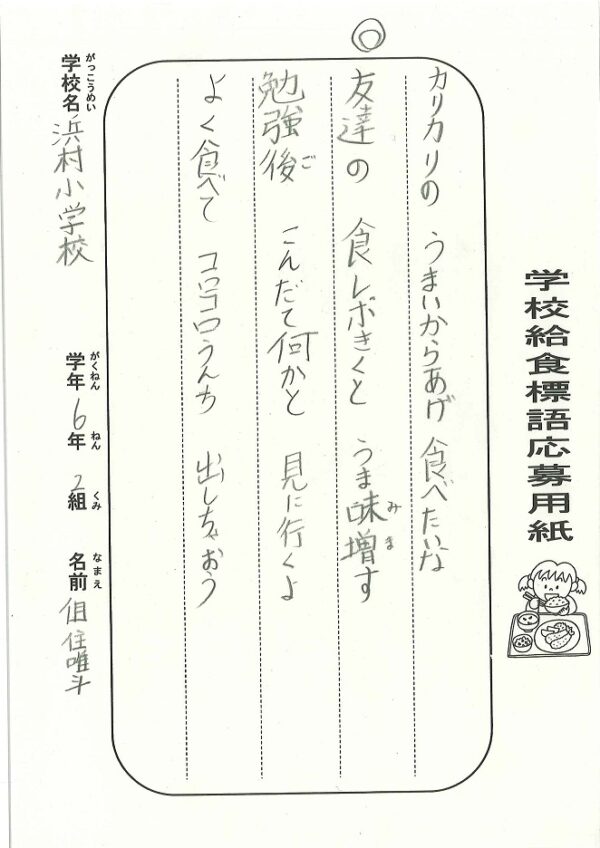 学校給食標語応募用紙
カリカリの うまいからあげ 食べたいな
友達の 食レポきくと うま味増す
みま
勉強後 こんだて何かと 見に行くよ
ご
よく食べて コロコロうんち 出しちゃおう
がっこうめい
学校名 浜村小学校
がくねん
学年 6年
ねん
2組
くみ
なまえ
名前 但住唯斗